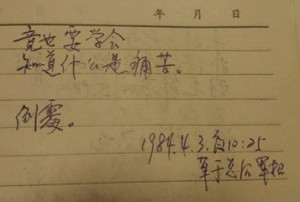 年 月 日
竟也要学会
知道什么是痛苦。
1984.4.3.夜10:25
草于总后军招